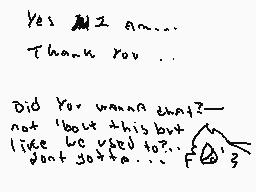 Yes I am...
Thank you ..
Did you wanna chat?—
not 'bout this but
like we used to?..
dont gotta...